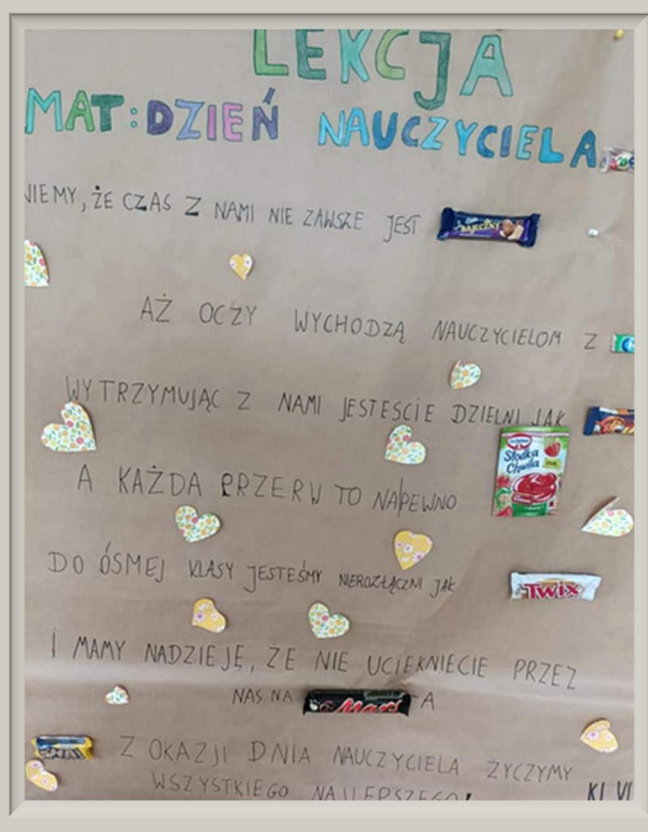 LEKCJA
MAT: DZIEŃ NAUCZYCIELA.
IEMY, ŻE CZAS Z NAMI NIE ZAWSZE JEST BAJECZNY
AŻ OCZY WYCHODZĄ NAUCZYCIELOM Z
WYTRZYMUJĄC Z NAMI JESTEŚCIE DZIELNI JAK
A KAŻDA PRZERW TO NAPEWNO Słodka Chwila
DO ÓSMEJ KLASY JESTEŚMY NIEROZŁĄCZNI JAK TWIX
I MAMY NADZIEJĘ, ŻE NIE UCIEKNIECIE PRZEZ
NAS NA Mars -A
Z OKAZJI DNIA NAUCZYCIELA ŻYCZYMY
WSZYSTKIEGO NAJLEPSZEGO! KL VI